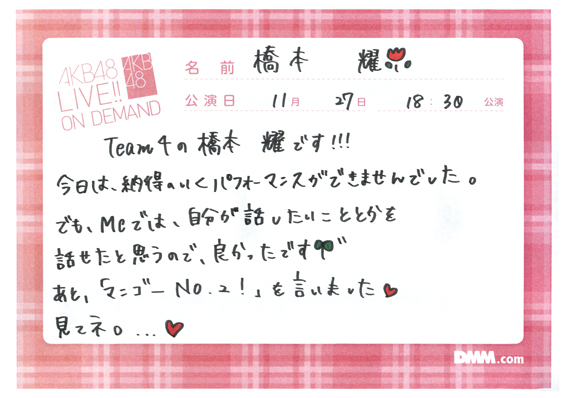 AKB48
LIVE!!
ON DEMAND
AKB
48
名前 橋本 耀
公演日 11月 27日 18:30 公演
Team4の橋本 耀です!!!
今日は、納得のいくパフォーマンスができませんでした。
でも、Mcでは、自分が話したいこととかを
話せたと思うので、良かったです
あと、「マンゴーNo.2!」を言いました
見てネ。...
DMM.com